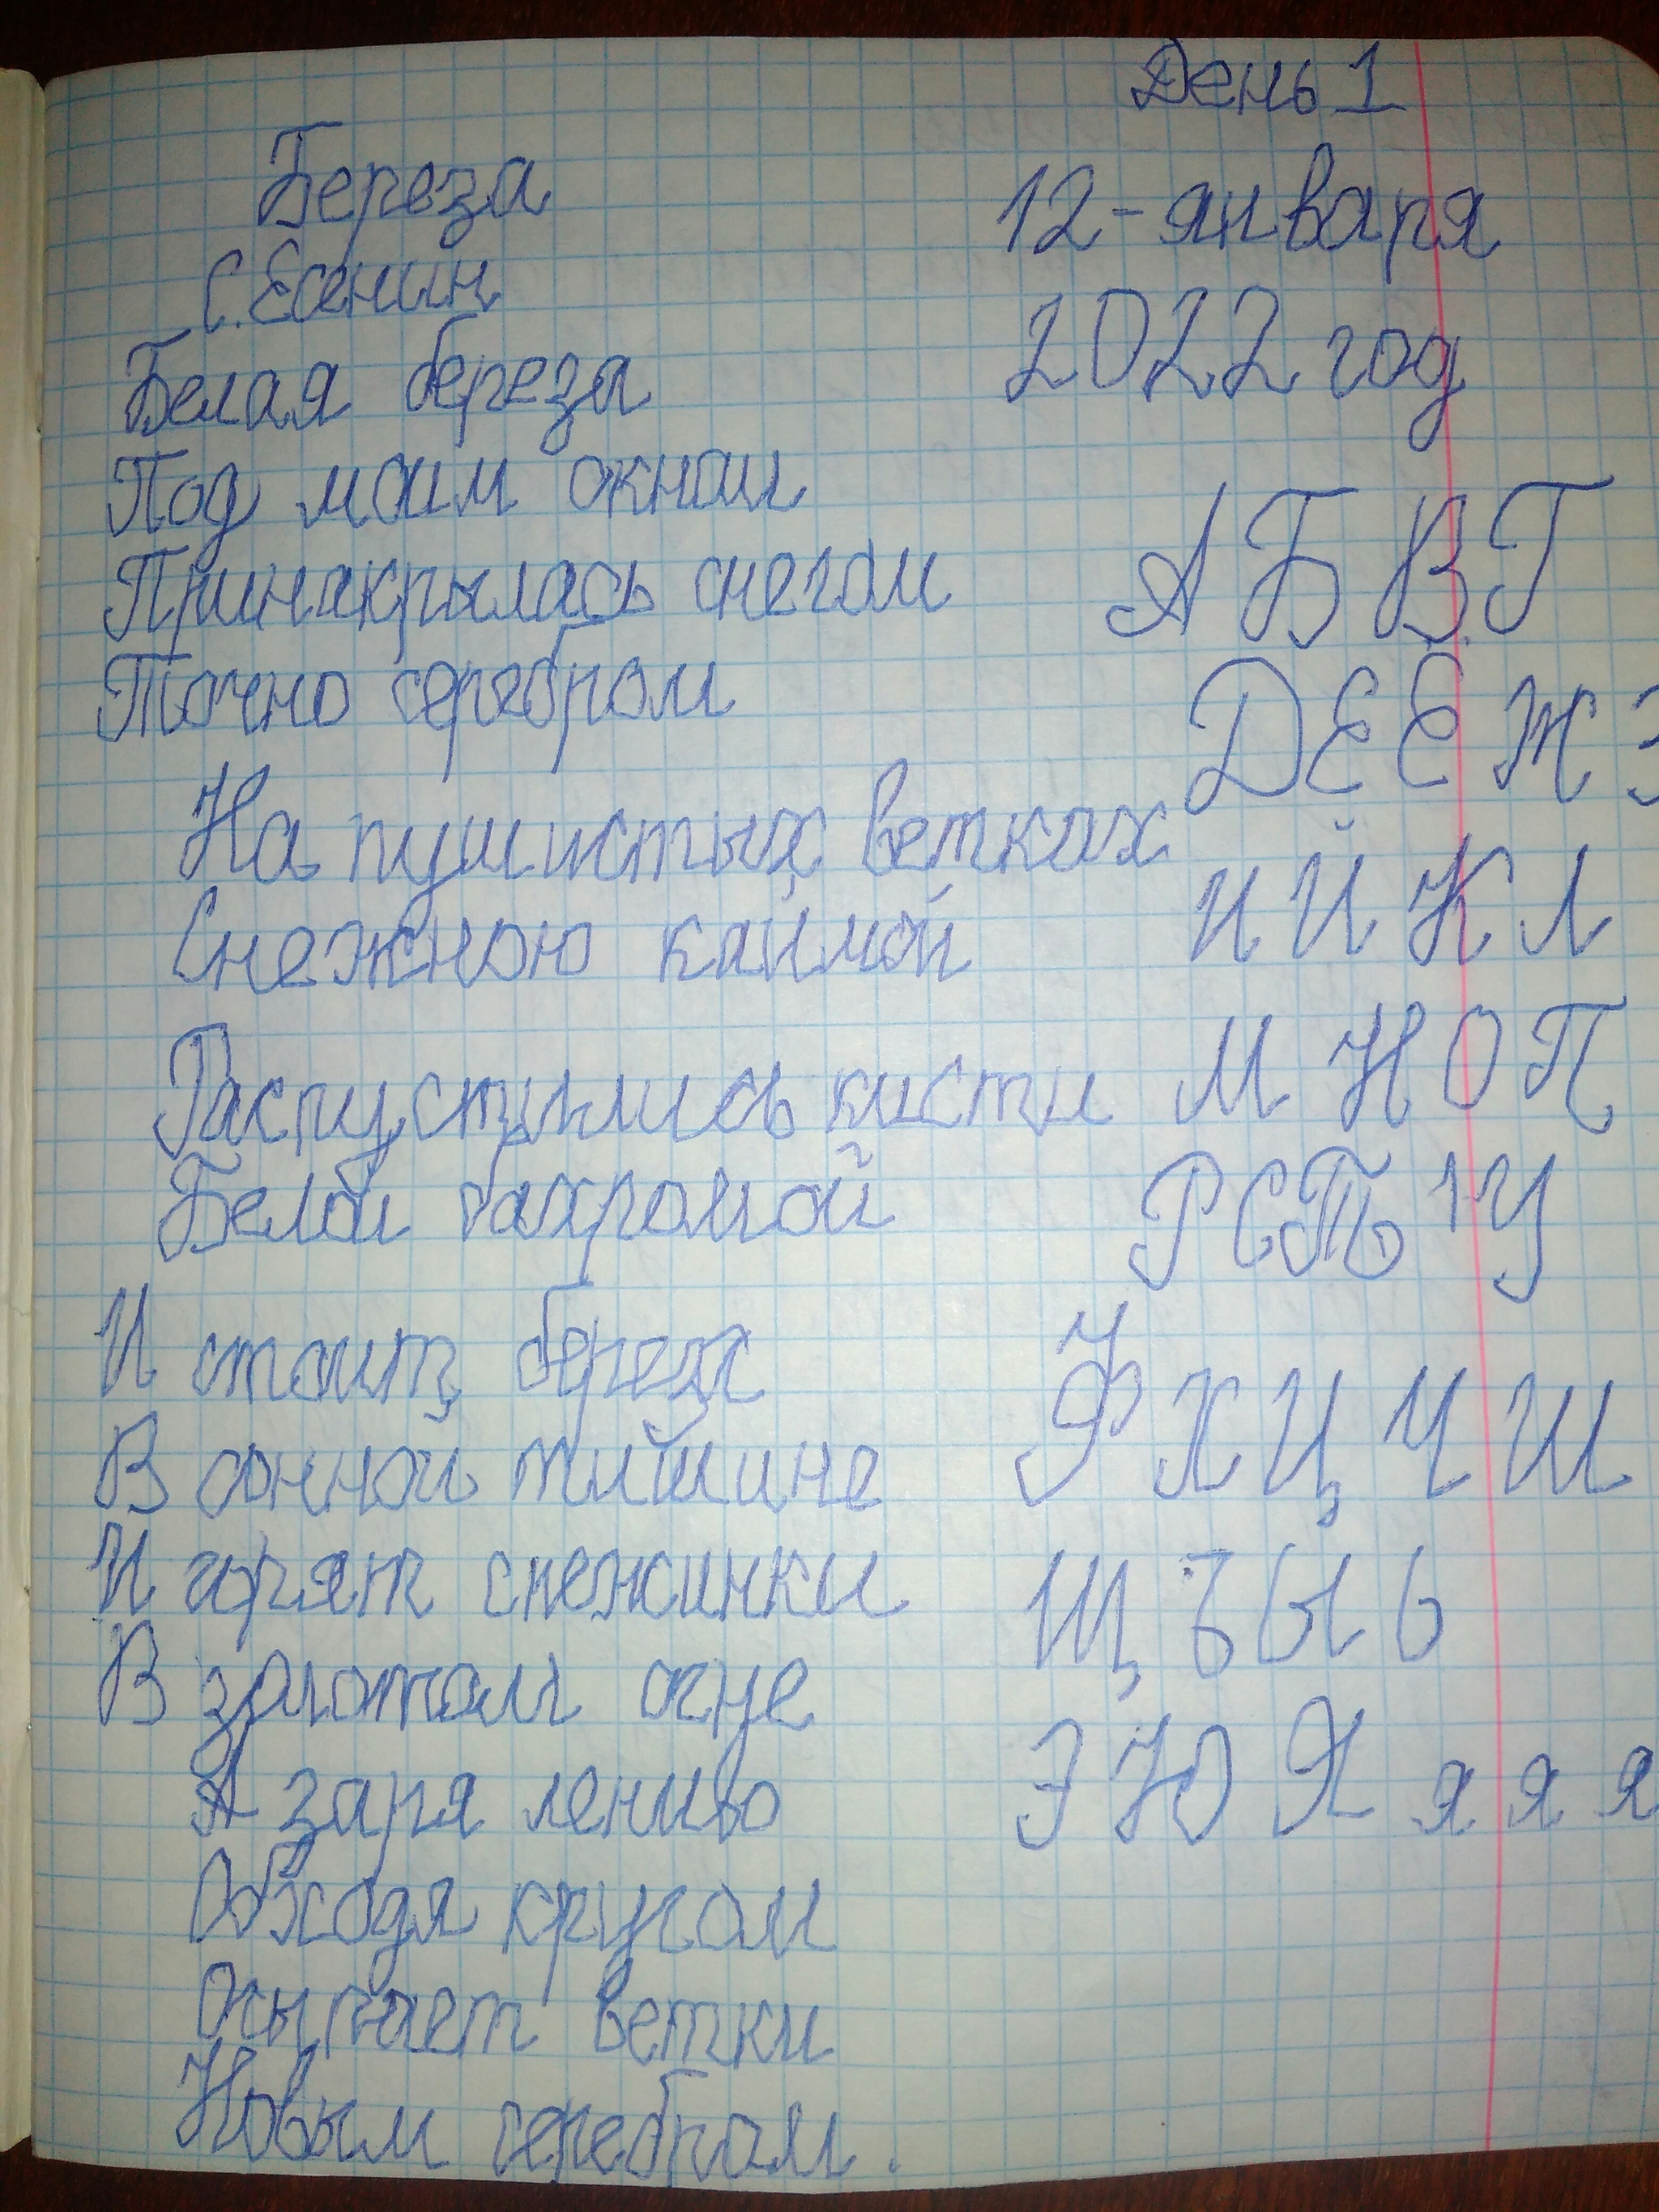 День 1
Береза
12-января
С.Есенин
2022 год
Белая береза
Под моим окном
Принакрылась снегом
Точно серебром
На пушистых ветках
Снежною каймой
Распустились кисти
Белой бахромой
И стоит береза
В сонной тишине
И горят снежинки
В золотом огне
А заря лениво
Обходя кругом
Осыпает ветки
Новым серебром.
А Б В Г
Д Е Ё Ж З
И Й К Л
М Н О П
Р С Т У
Ф Х Ц Ч Ш
Щ Ъ Ы Ь
Э Ю Я я я я